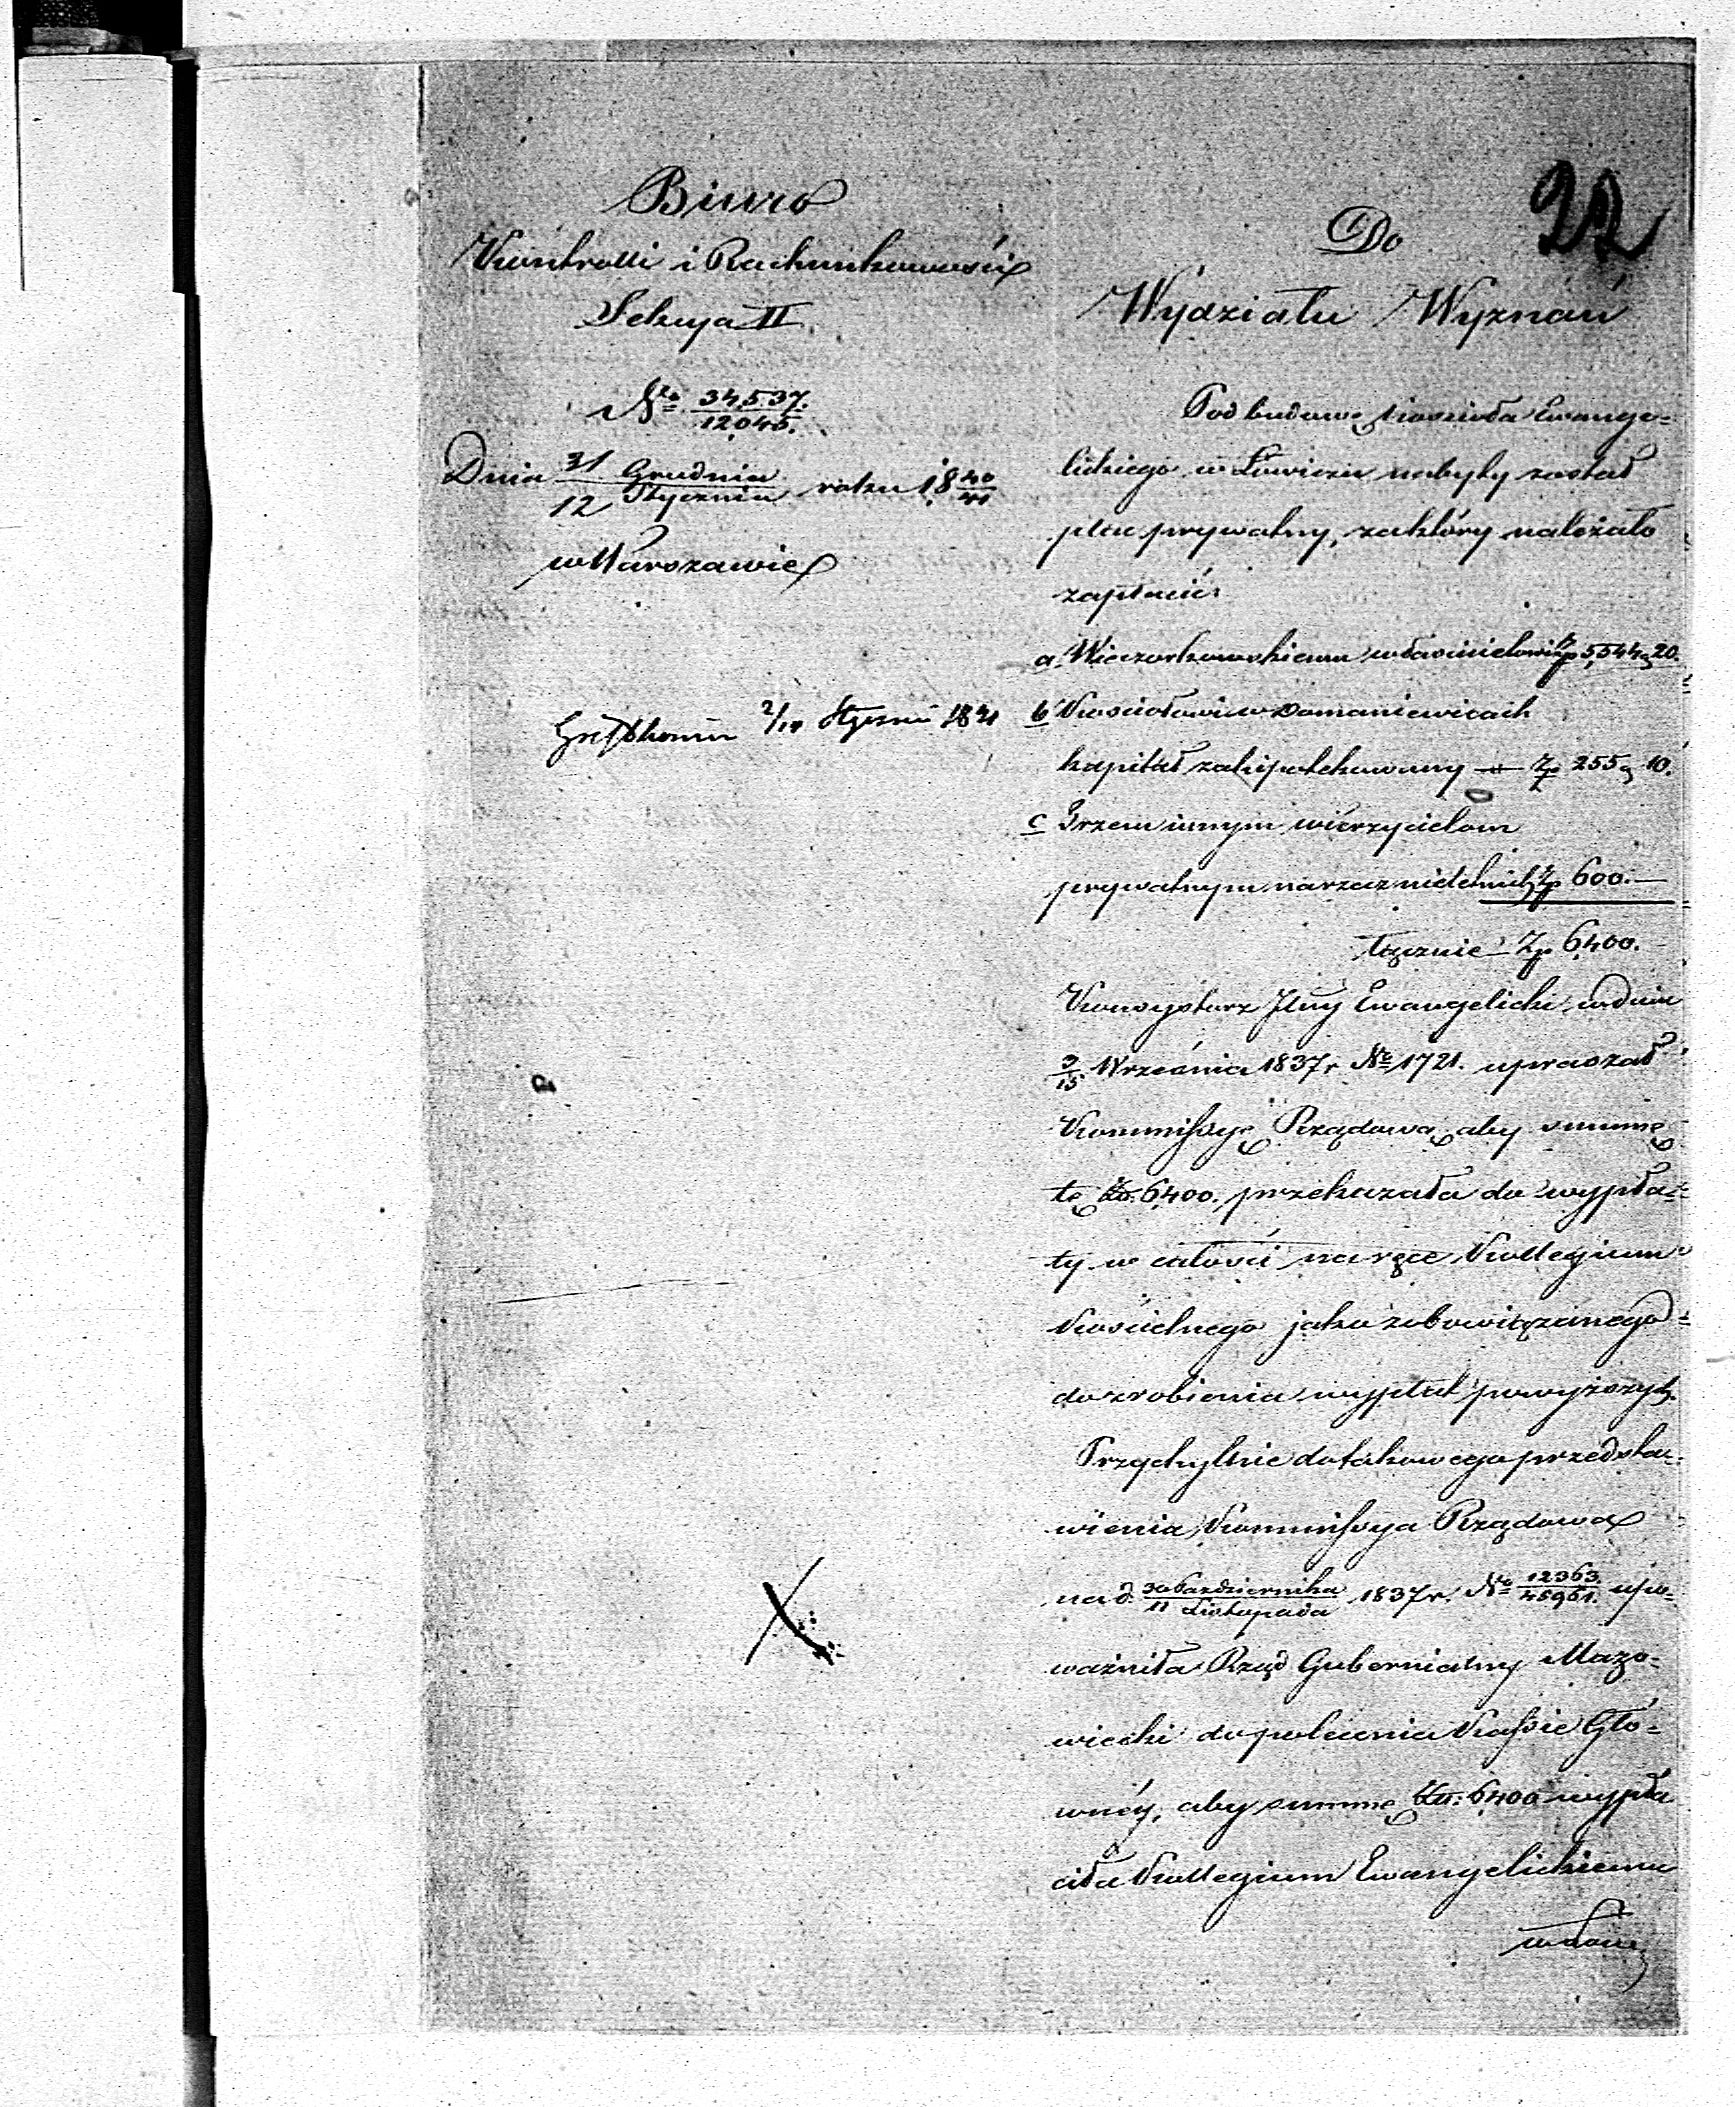 22
Biuro
Kontrolli i Rachunkowości
Sekcya II
No 34,537. / 12045.
Dnia 31 Grudnia / 12 Stycznia roku 18 40/41
w Warszawie
2/14 Stycznia 1841
Do
Wydziału Wyznań
Pod budowę kościoła Ewange-
lickiego w Łowiczu nabyty został
plac prywatny, za który należało
zapłacić:
a. Wieczorkowskiemu właścicielowi Zp 5,544 g 20.
b Kościołowi w Domaniewicach
kapitał zahipotekowany — Zp 255 g 10.
c Trzem innym wierzycielom
prywatnym Zp 600.—
łącznie Zp 6,400.
Konsystorz Jlny Ewangelicki w dniu
3/15 Września 1837 r No 1721. upraszał
Kommissyę Rządową, aby summę
tę Złp. 6,400. przekazała do wypła-
ty w całości na ręce Kollegium
Kościelnego jako zobowiązanego
do zrobienia wypłat powyższych.
Przychylnie do takowego przedsta-
wienia Kommissya Rządowa
na d. 30 Października / 11 Listopada 1837 r. No 12363. / 45961. upo-
ważniła Rząd Gubernialny Mazo-
wiecki do polecenia Kassie Głó-
wnéy, aby summę Złp. 6,400 wypła
ciła Kollegium Ewangelickiemu